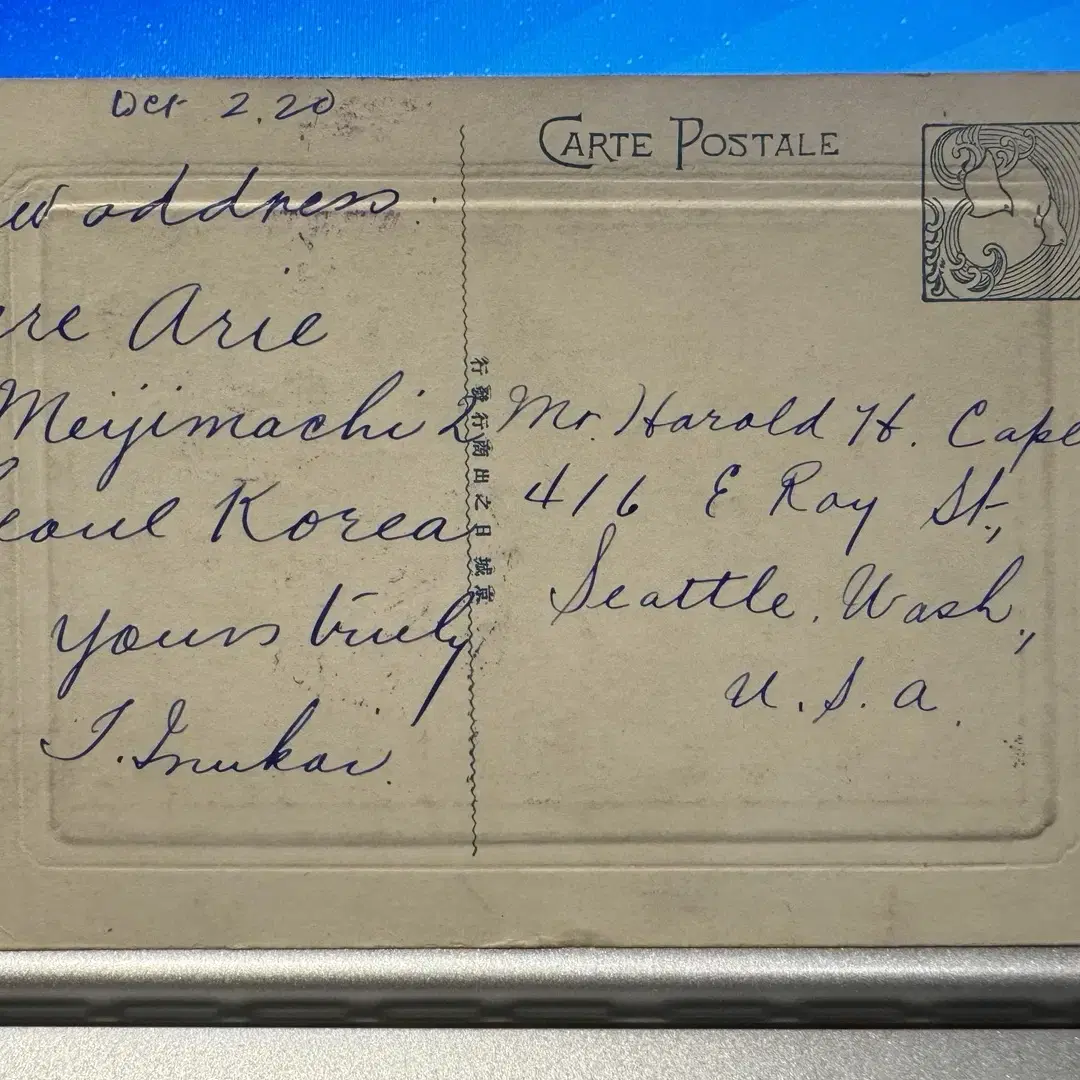 Oct 2. 20
ew address.
ere Arie
Meijimachi 2
eoul Korea
Yours truly
T. Inukai.
CARTE POSTALE
京城 日之出商行發行
Mr. Harold H. Cape
416 E Roy St.,
Seattle, Wash.,
U.S.A.